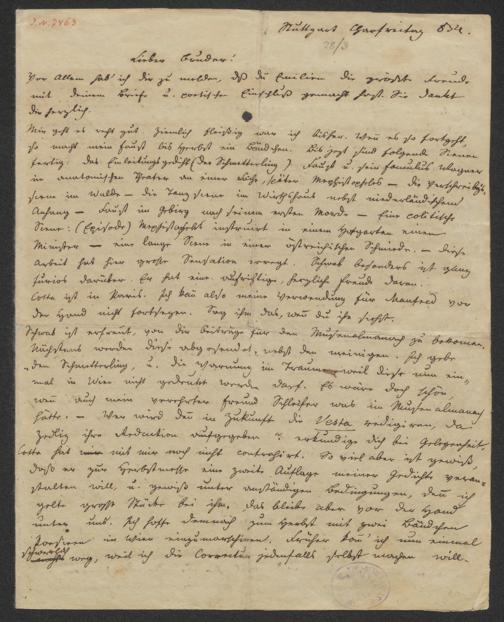 J.N. 7463
Stuttgart Charfreitag 834.
28/3
Lieber Bruder!
Vor Allem hab' ich dir zu melden, daß du Emilien die größte Freude
mit deinem Briefe u. poetischen Einschluß gemacht hast. Sie dankt
dir herzlich.
Mir geht es recht gut. Ziemlich fleißig war ich bisher. Wenn es so fortgeht,
so macht mein Faust bis Herbst ein Bändchen. Bis jezt sind folgende Scenen
fertig: das Einleitungsgedicht (der Schmetterling) Faust u. sein Famulus Wagner
im anatomischen Theater an einer Leiche, später Mephistopheles — die Verschreibungs
scene im Walde — die Tanzscene im Wirthshaus nebst niederländischem
Anhang — Faust im Gebirg nach seinem ersten Morde — Eine politische
Scene: (Episode) Mephistopheles instruirt in einem Hofgarten einen
Minister — eine lange Scene in einer östreichischen Schmiede. — Diese
Arbeit hat hier große Sensation erregt. Schwab besonders ist ganz
furios darüber. Er hat eine aufrichtige, herzliche Freude daran.
Cotta ist in Paris. Ich kann also meine Verwendung für Manfred vor
der Hand nicht fortsetzen. Sag ihm das, wenn du ihn siehst.
Schwab ist erfreut, von dir Beiträge für den Musenalmanach zu bekommen.
Nächstens werden diese abgesendet, nebst den meinigen. Ich gebe
"den Schmetterling, u. die Warnung im Traume weil diese nun ein-
mal in Wien nicht gedruckt werden darf. Es wäre doch schön,
wenn auch mein verehrter Freund Schleifer was im Musenalmanach
hätte. — Wer wird denn in Zukunft die Vesta redigiren, da
Zedlitz ihre Redaction aufgegeben? erkundige dich bei Gelegenheit.
Cotta hat mit mir noch nicht contrahirt. So viel aber ist gewiß,
daß er zur Herbstmesse eine zweite Auflage meiner Gedichte veran-
stalten will, u. gewiß unter anständigen Bedingungen, denn ich
gelte große Stücke bei ihm. Das bleibt aber vor der Hand
unter uns. Ich hoffe demnach zum Herbst mit zwei Bändchen
Poesieen in Wien einzumarschiren. Früher kann ich nun einmal
schwerlich weg, weil ich die Correctur jedenfalls selbst machen will.